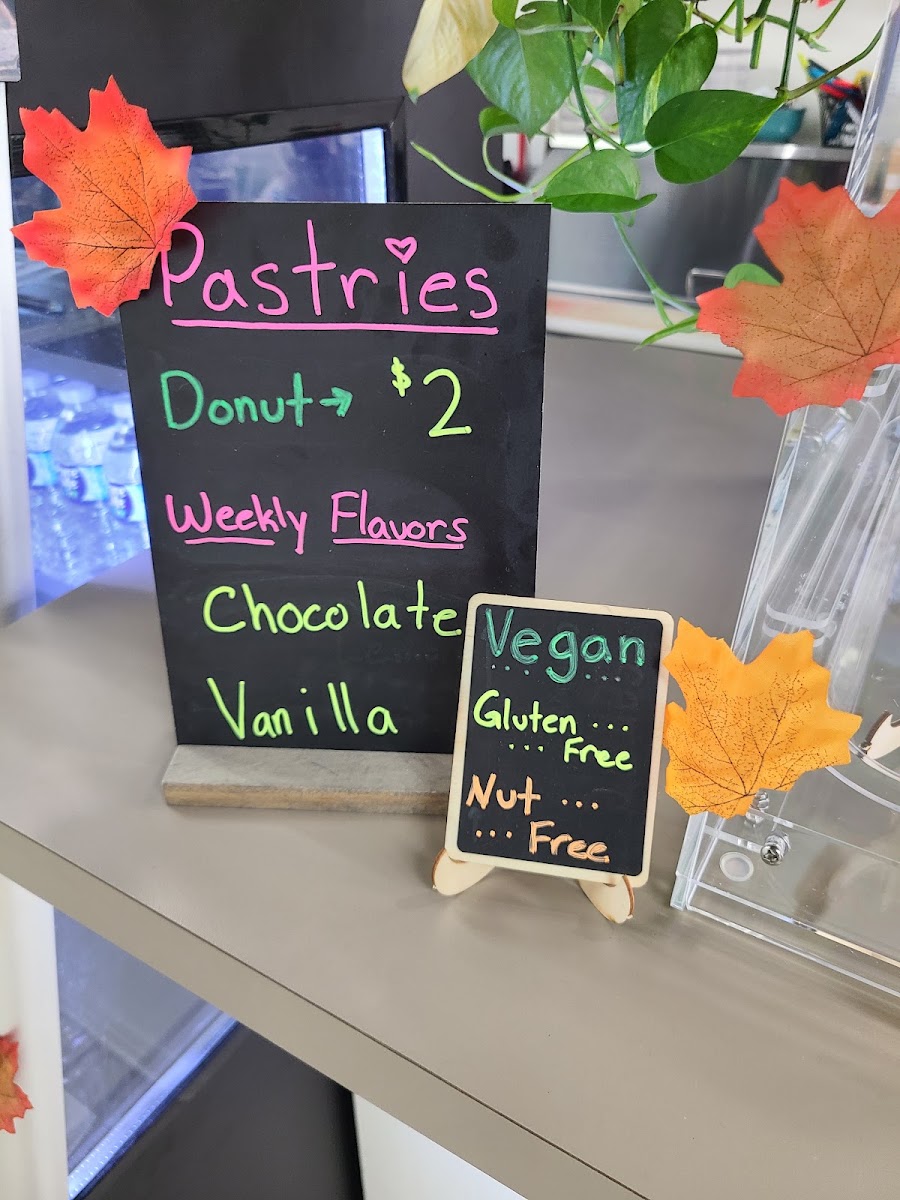 Pastries
Donut → $2
Weekly Flavors
Chocolate
Vanilla
Vegan
... ...
Gluten ...
... Free
Nut ...
... Free